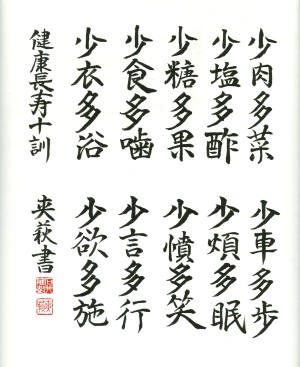 少肉多菜
少塩多酢
少糖多果
少食多噛
少衣多浴
健康長寿十訓
少車多歩
少煩多眠
少憤多笑
少言多行
少欲多施
英荻書